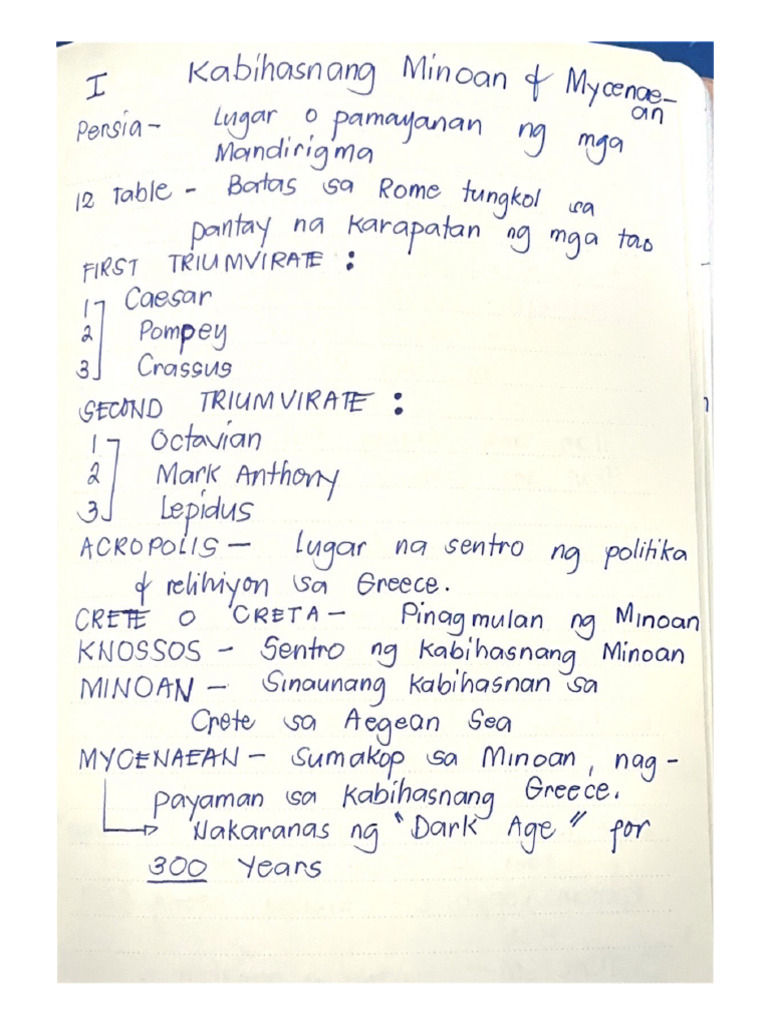 I Kabihasnang Minoan & Mycenae-
an
Persia - Lugar o pamayanan ng mga
Mandirigma
12 Table - Batas sa Rome tungkol sa
pantay na karapatan ng mga tao
FIRST TRIUMVIRATE :
1 Caesar
2 Pompey
3 Crassus
SECOND TRIUMVIRATE :
1 Octavian
2 Mark Anthony
3 Lepidus
ACROPOLIS - Lugar na sentro ng politika
& relihiyon sa Greece.
CRETE O CRETA - Pinagmulan ng Minoan
KNOSSOS - Sentro ng Kabihasnang Minoan
MINOAN - Sinaunang Kabihasnan sa
Crete sa Aegean Sea
MYCENAEAN - Sumakop sa Minoan, nag-
payaman sa Kabihasnang Greece.
Nakaranas ng "Dark Age" for
300 Years